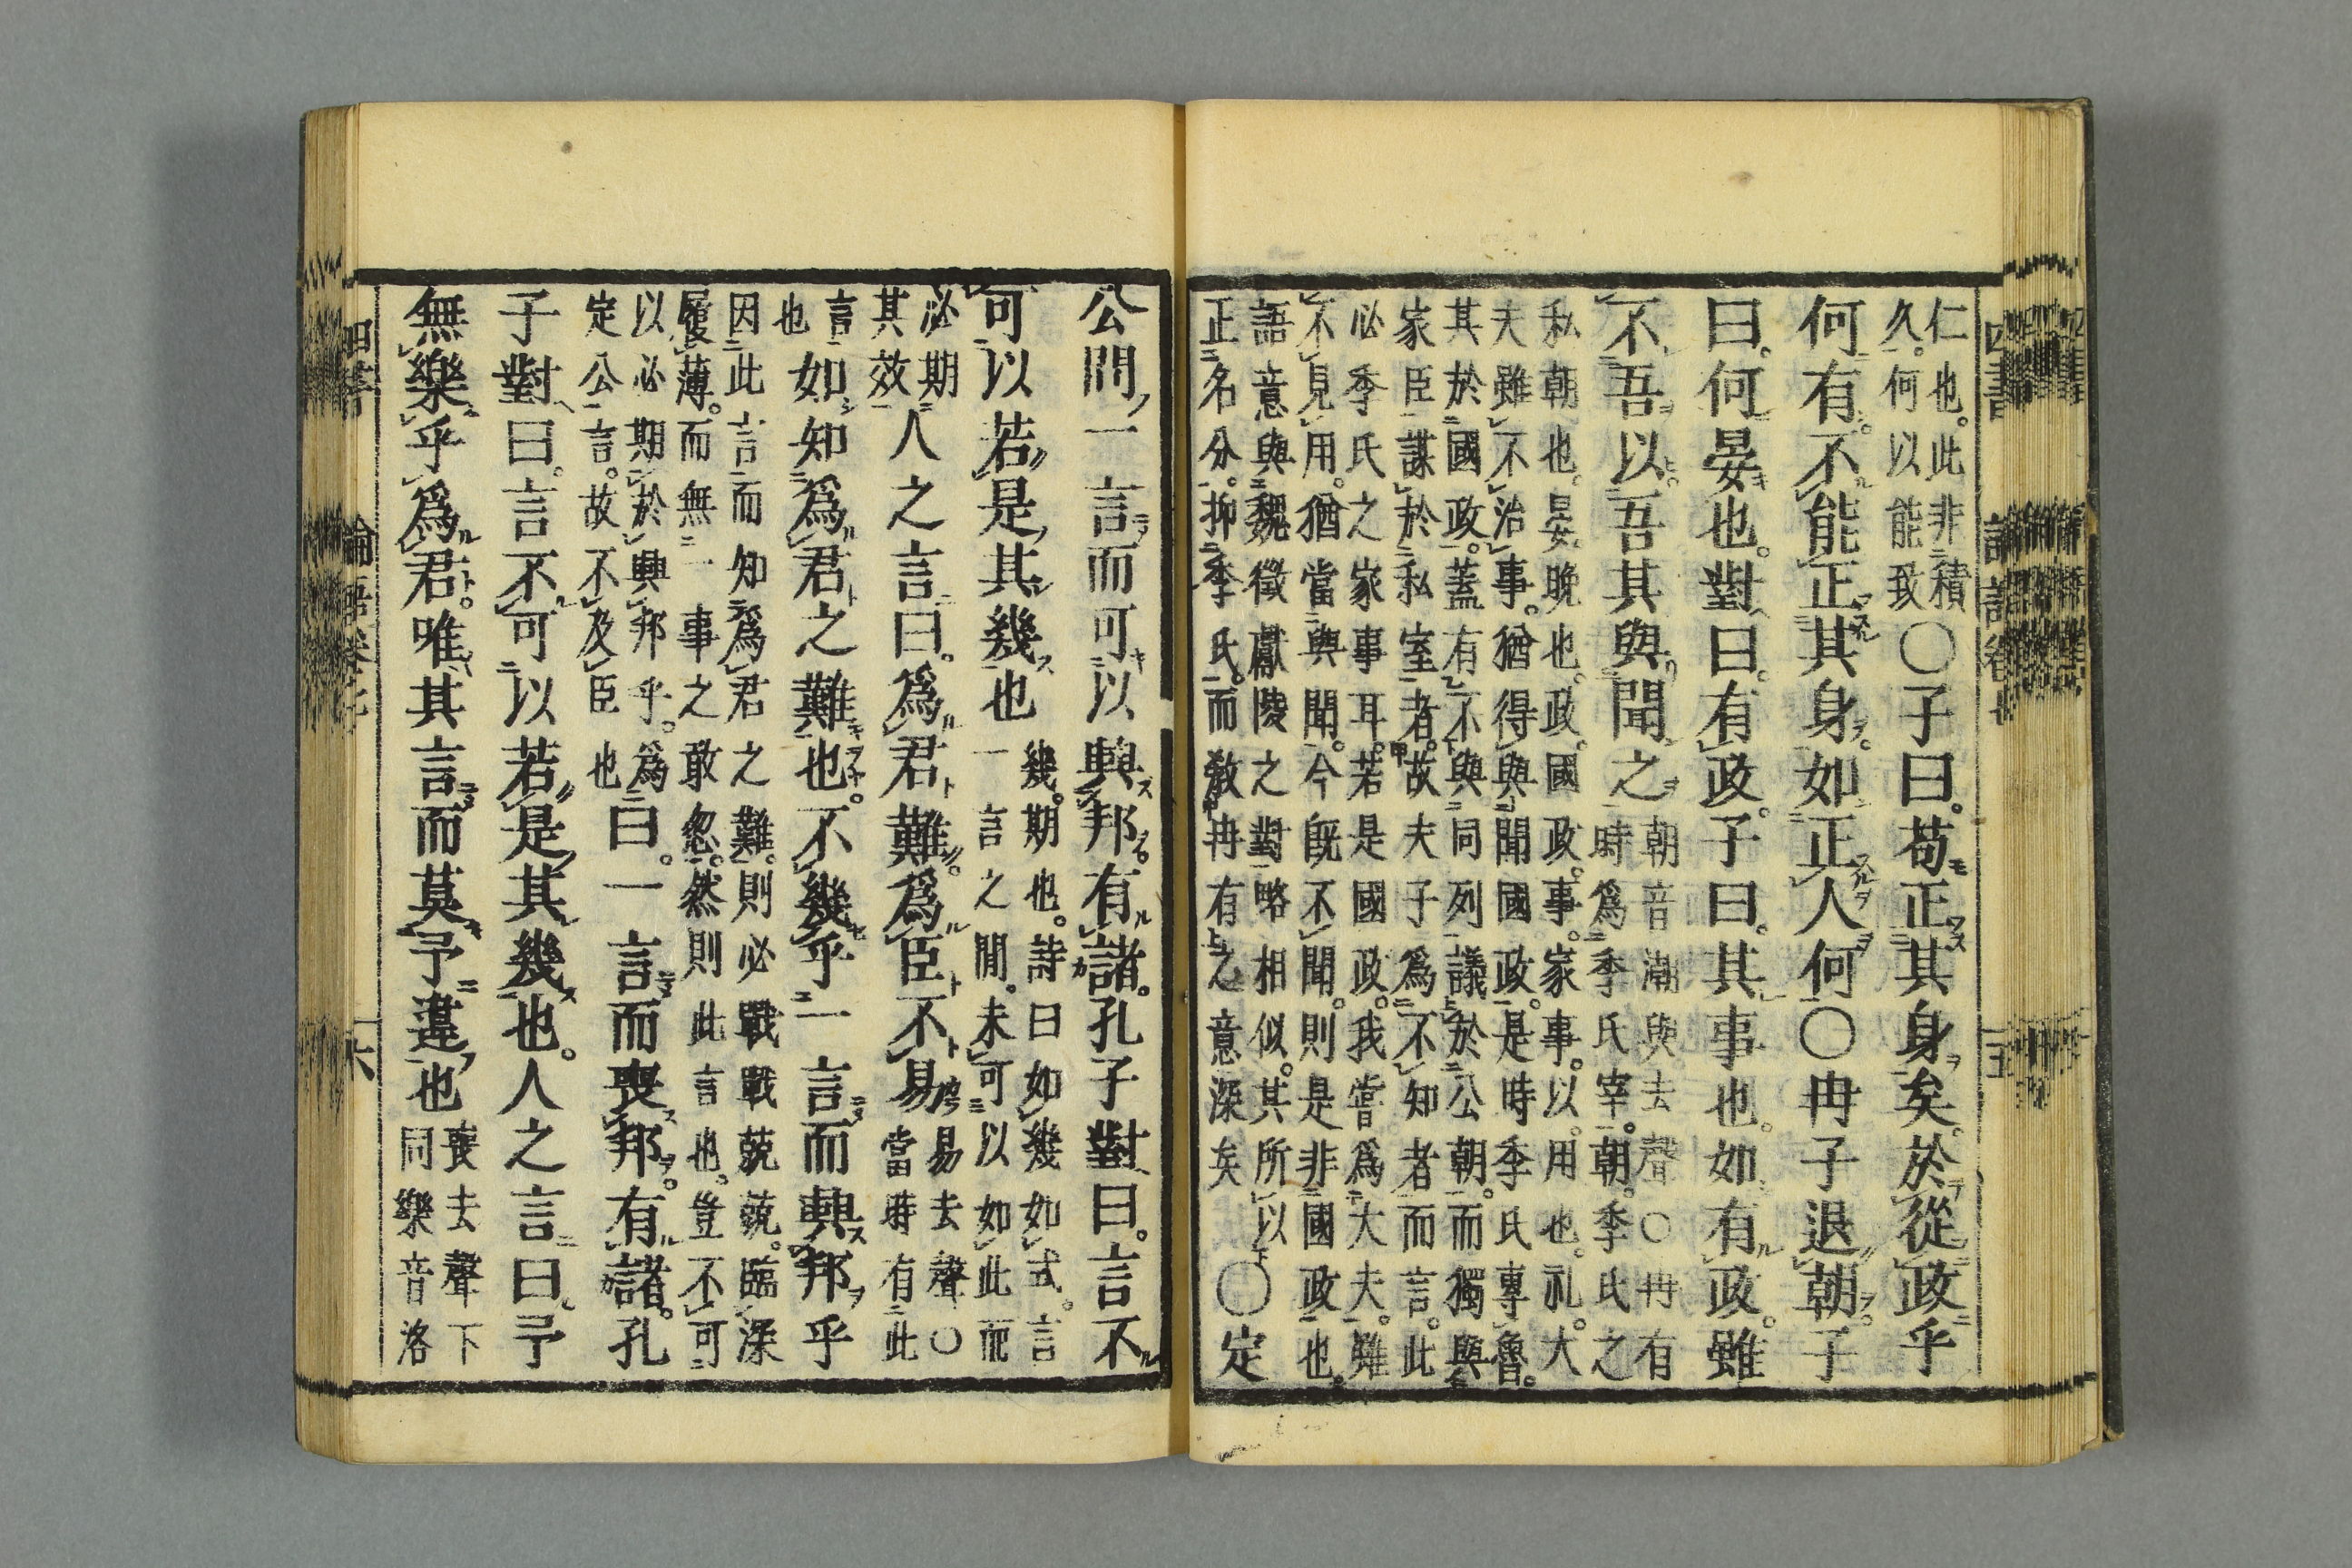 仁也。此非積
久。何以能致
〇子曰。苟正其身矣。於從政乎
何有。不能正其身。如正人何〇冉子退朝。子
曰。何晏也。對曰。有政。子曰。其事也。如有政。雖
不吾以。吾其與聞之
朝音潮與去聲〇冉有
時爲季氏宰。朝。季氏之
私朝也。晏。晚也。政。國政。事。家事。以。用也。礼。大
夫雖不治事。猶得與聞國政。是時季氏專魯。
其於國政。蓋有不與同列議於公朝。而獨與
家臣謀於私室者。故夫子爲不知者而言。此
必季氏之家事耳。若是國政。我嘗爲大夫。雖
不見用。猶當與聞。今旣不聞。則是非國政也。
語意與魏徵獻陵之對略相似。其所以
正名分。抑季氏。而敎冉有之意深矣
〇定
公問。一言而可以興邦。有諸。孔子對曰。言不
可以若是其幾也
幾。期也。詩曰如幾如式。言
一言之間。未可以如此而
必期
其效
人之言曰。爲君難。爲臣不易
易去聲〇
當時有此
言
也
如知爲君之難也。不幾乎一言而興邦乎
因此言而知爲君之難。則必戰戰兢兢。臨深
履薄。而無一事之敢忽。然則此言也。豈不可
以必期於興邦乎。爲
定公言。故不及臣也
曰。一言而喪邦。有諸。孔
子對曰。言不可以若是其幾也。人之言曰。予
無樂乎爲君。唯其言而莫予違也
喪去聲下
同樂音洛